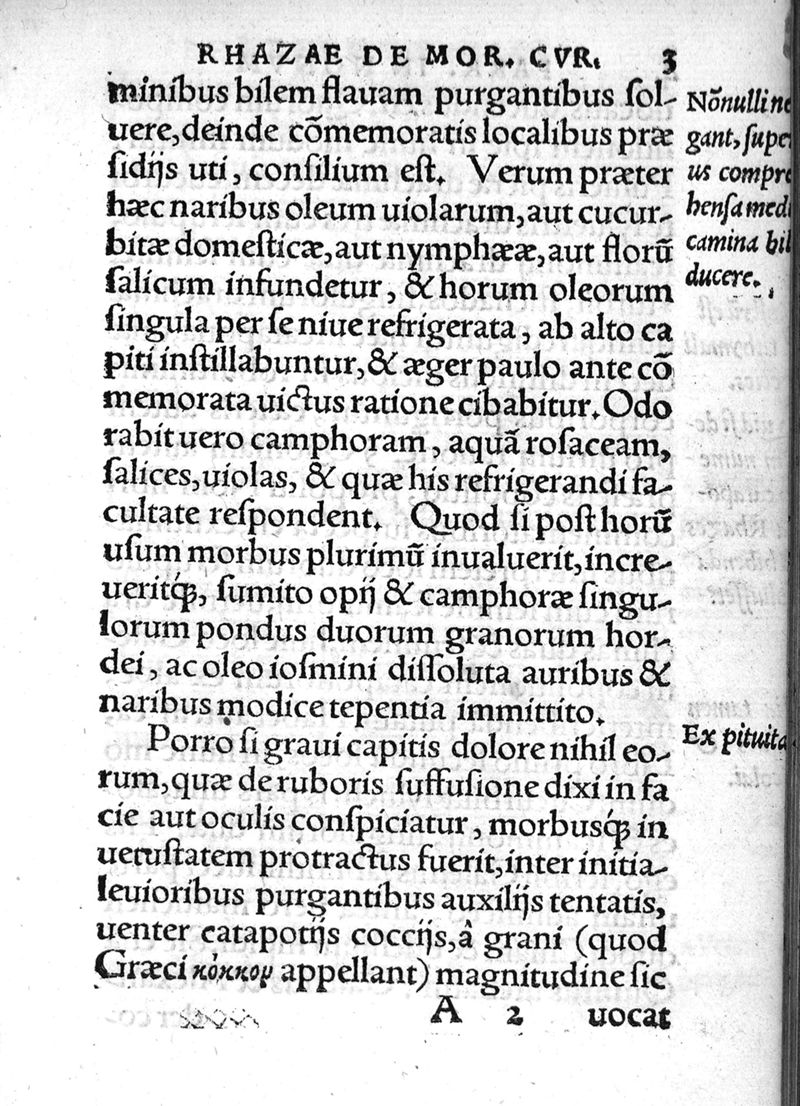 RHAZAE DE MOR. CVR. 3
minibus bilem flauam purgantibus ſol-
uere, deinde cõmemoratis localibus præ
ſidijs uti, conſilium eſt. Verum præter
hæc naribus oleum uiolarum, aut cucur-
bitæ domeſticæ, aut nymphææ, aut florũ
ſalicum infundetur, & horum oleorum
ſingula per ſe niue refrigerata, ab alto ca
piti inſtillabuntur, & æger paulo ante cõ
memorata uictus ratione cibabitur. Odo
rabit uero camphoram, aquã roſaceam,
ſalices, uiolas, & quæ his refrigerandi fa-
cultate reſpondent. Quod ſi poſt horũ
uſum morbus plurimũ inualuerit, incre-
ueritq́;, ſumito opij & camphoræ ſingu-
lorum pondus duorum granorum hor-
dei, ac oleo ioſmini diſſoluta auribus &
naribus modice tepentia immittito.
Porro ſi graui capitis dolore nihil eo-
rum, quæ de ruboris ſuffuſione dixi in fa
cie aut oculis conſpiciatur, morbusq́; in
uetuſtatem protractus fuerit, inter initia
leuioribus purgantibus auxilijs tentatis,
uenter catapotijs coccijs, â grani (quod
Græci κόκκον appellant) magnitudine ſic
A 2 uocat
Nõnulli ne
gant, ſupe
us compre
henſa medi
camina bil
ducere.
Ex pituita